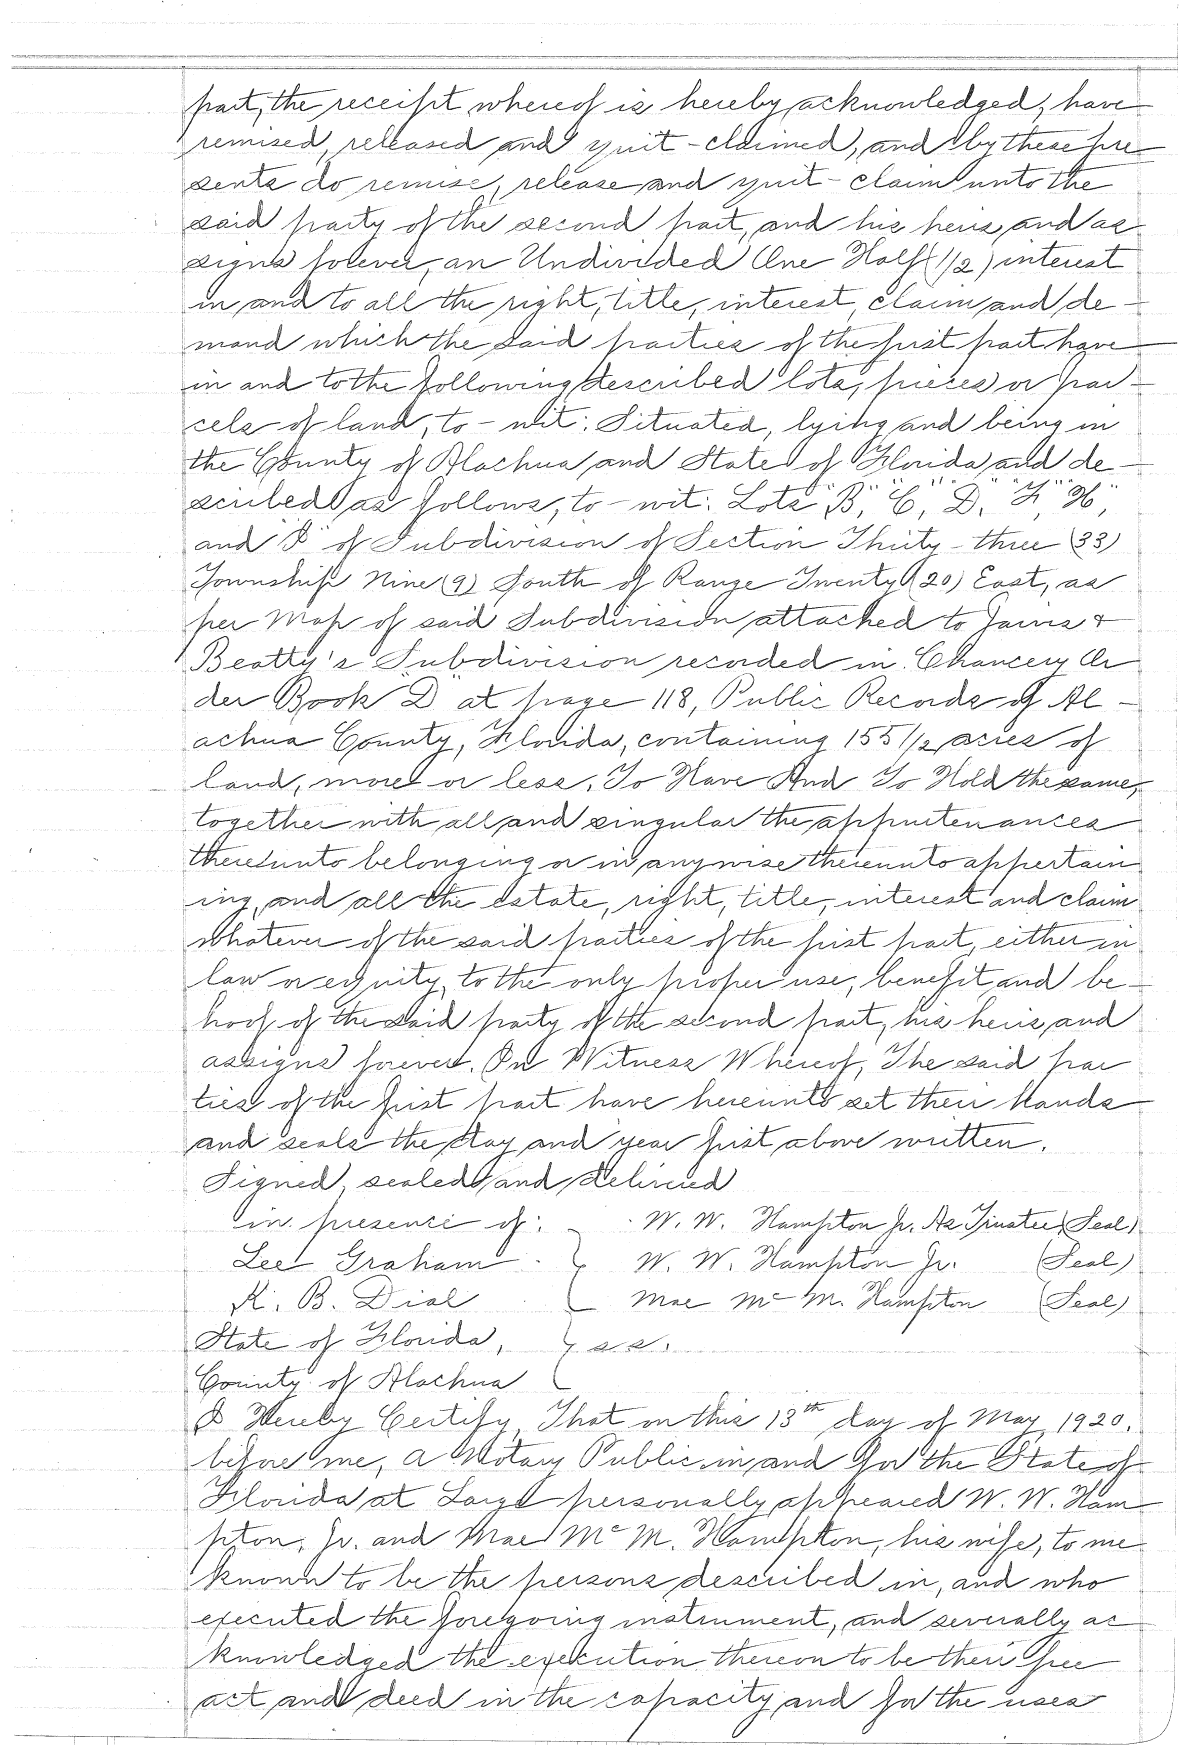 part, the receipt whereof is hereby acknowledged, have
remised, released and quit-claimed, and by these pre
sents do remise, release and quit-claim unto the
said party of the second part, and his heirs and as
signs forever, an Undivided One Half (1/2) interest
in and to all the right, title, interest, claim and de-
mand which the said parties of the first part have
in and to the following described lots, pieces or par-
cels of land, to-wit: Situated, lying and being in
the County of Alachua and State of Florida and de-
scribed as follows, to-wit: Lots "B", "C", "D", "F", "H",
and "I" of Subdivision of Section Thirty-three (33)
Township Nine (9) South of Range Twenty (20) East, as
per Map of said Subdivision attached to Jarvis &
Beatty's Subdivision recorded in Chancery Or
der Book "D" at page 118, Public Records of Al-
achua County, Florida, containing 155 1/2 acres of
land, more or less. To Have And To Hold the same,
together with all and singular the appurtenances
thereunto belonging or in anywise thereunto appertain
ing, and all the estate, right, title, interest and claim
whatever of the said parties of the first part, either in
law or equity, to the only proper use, benefit and be-
hoof of the said party of the second part, his heirs and
assigns forever. In Witness Whereof, The said par
ties of the first part have hereunto set their hands
and seals the day and year first above written.
Signed, sealed and delivered
in presence of: W. W. Hampton Jr. As Trustee (Seal)
Lee Graham W. W. Hampton Jr. (Seal)
K. B. Dial Mae Mc M. Hampton (Seal)
State of Florida, } s.s.
County of Alachua
I Hereby Certify, That on this 13th day of May, 1920.
before me, a Notary Public in and for the State of
Florida at Large personally appeared W. W. Ham
pton, Jr. and Mae Mc M. Hampton, his wife, to me
known to be the persons described in, and who
executed the foregoing instrument, and severally ac
knowledged the execution thereon to be their free
act and deed in the capacity and for the uses